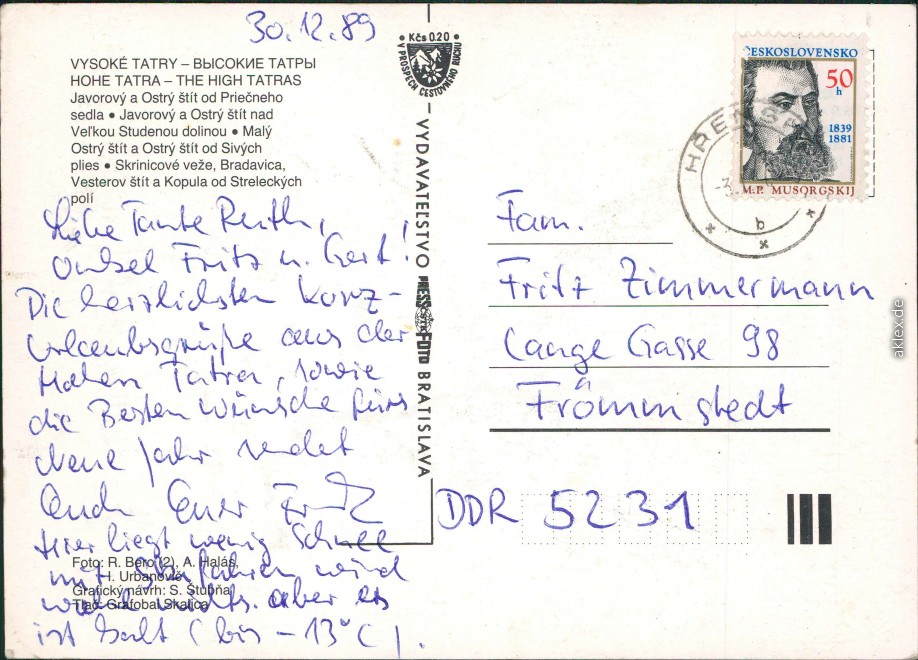 30.12.89
VYSOKÉ TATRY – ВЫСОКИЕ ТАТРЫ
HOHE TATRA – THE HIGH TATRAS
Javorový a Ostrý štít od Priečneho
sedla • Javorový a Ostrý štít nad
Veľkou Studenou dolinou • Malý
Ostrý štít a Ostrý štít od Sivých
plies • Skrinicové veže, Bradavica,
Vesterov štít a Kopula od Streleckých
polí
Liebe Tante Ruth,
Onkel Fritz u. Gert!
Die herzlichsten Kurz-
urlaubsgrüße aus der
Hohen Tatra, sowie
die Besten Wünsche fürs
Neue Jahr sendet
Euch Euer Fritz
Hier liegt wenig Schnee
mit Skifahren wird
wohl nichts. aber es
ist kalt (bis -13°C).
Foto: R. Bero (2), A. Halás,
H. Urbanovič
Grafický návrh: S. Štubňa
Tlač: Grafobal Skalica
Kčs 0.20
V PROSPECH CESTOVNÉHO RUCHU
VYDAVATEĽSTVO PRESSFOTO BRATISLAVA
ČESKOSLOVENSKO
50
h
1839
1881
M.P. MUSORGSKIJ
b
Fam.
Fritz Zimmermann
Lange Gasse 98
Frömmstedt
DDR 5231
aklex.de